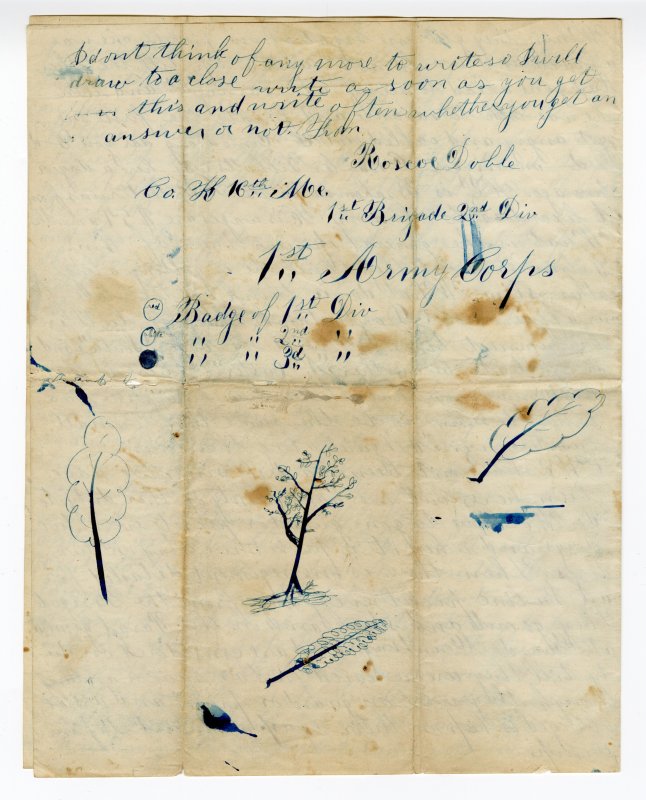 I dont think of any more to write so I will
draw to a close write a soon as you get
this and write often whether you get an
answer or not. From
Roscoe Doble
Co. H 16th Me.
1st Brigade 2nd Div
1st Army Corps
red Badge of 1st Div
" " 2nd "
" " 3d "